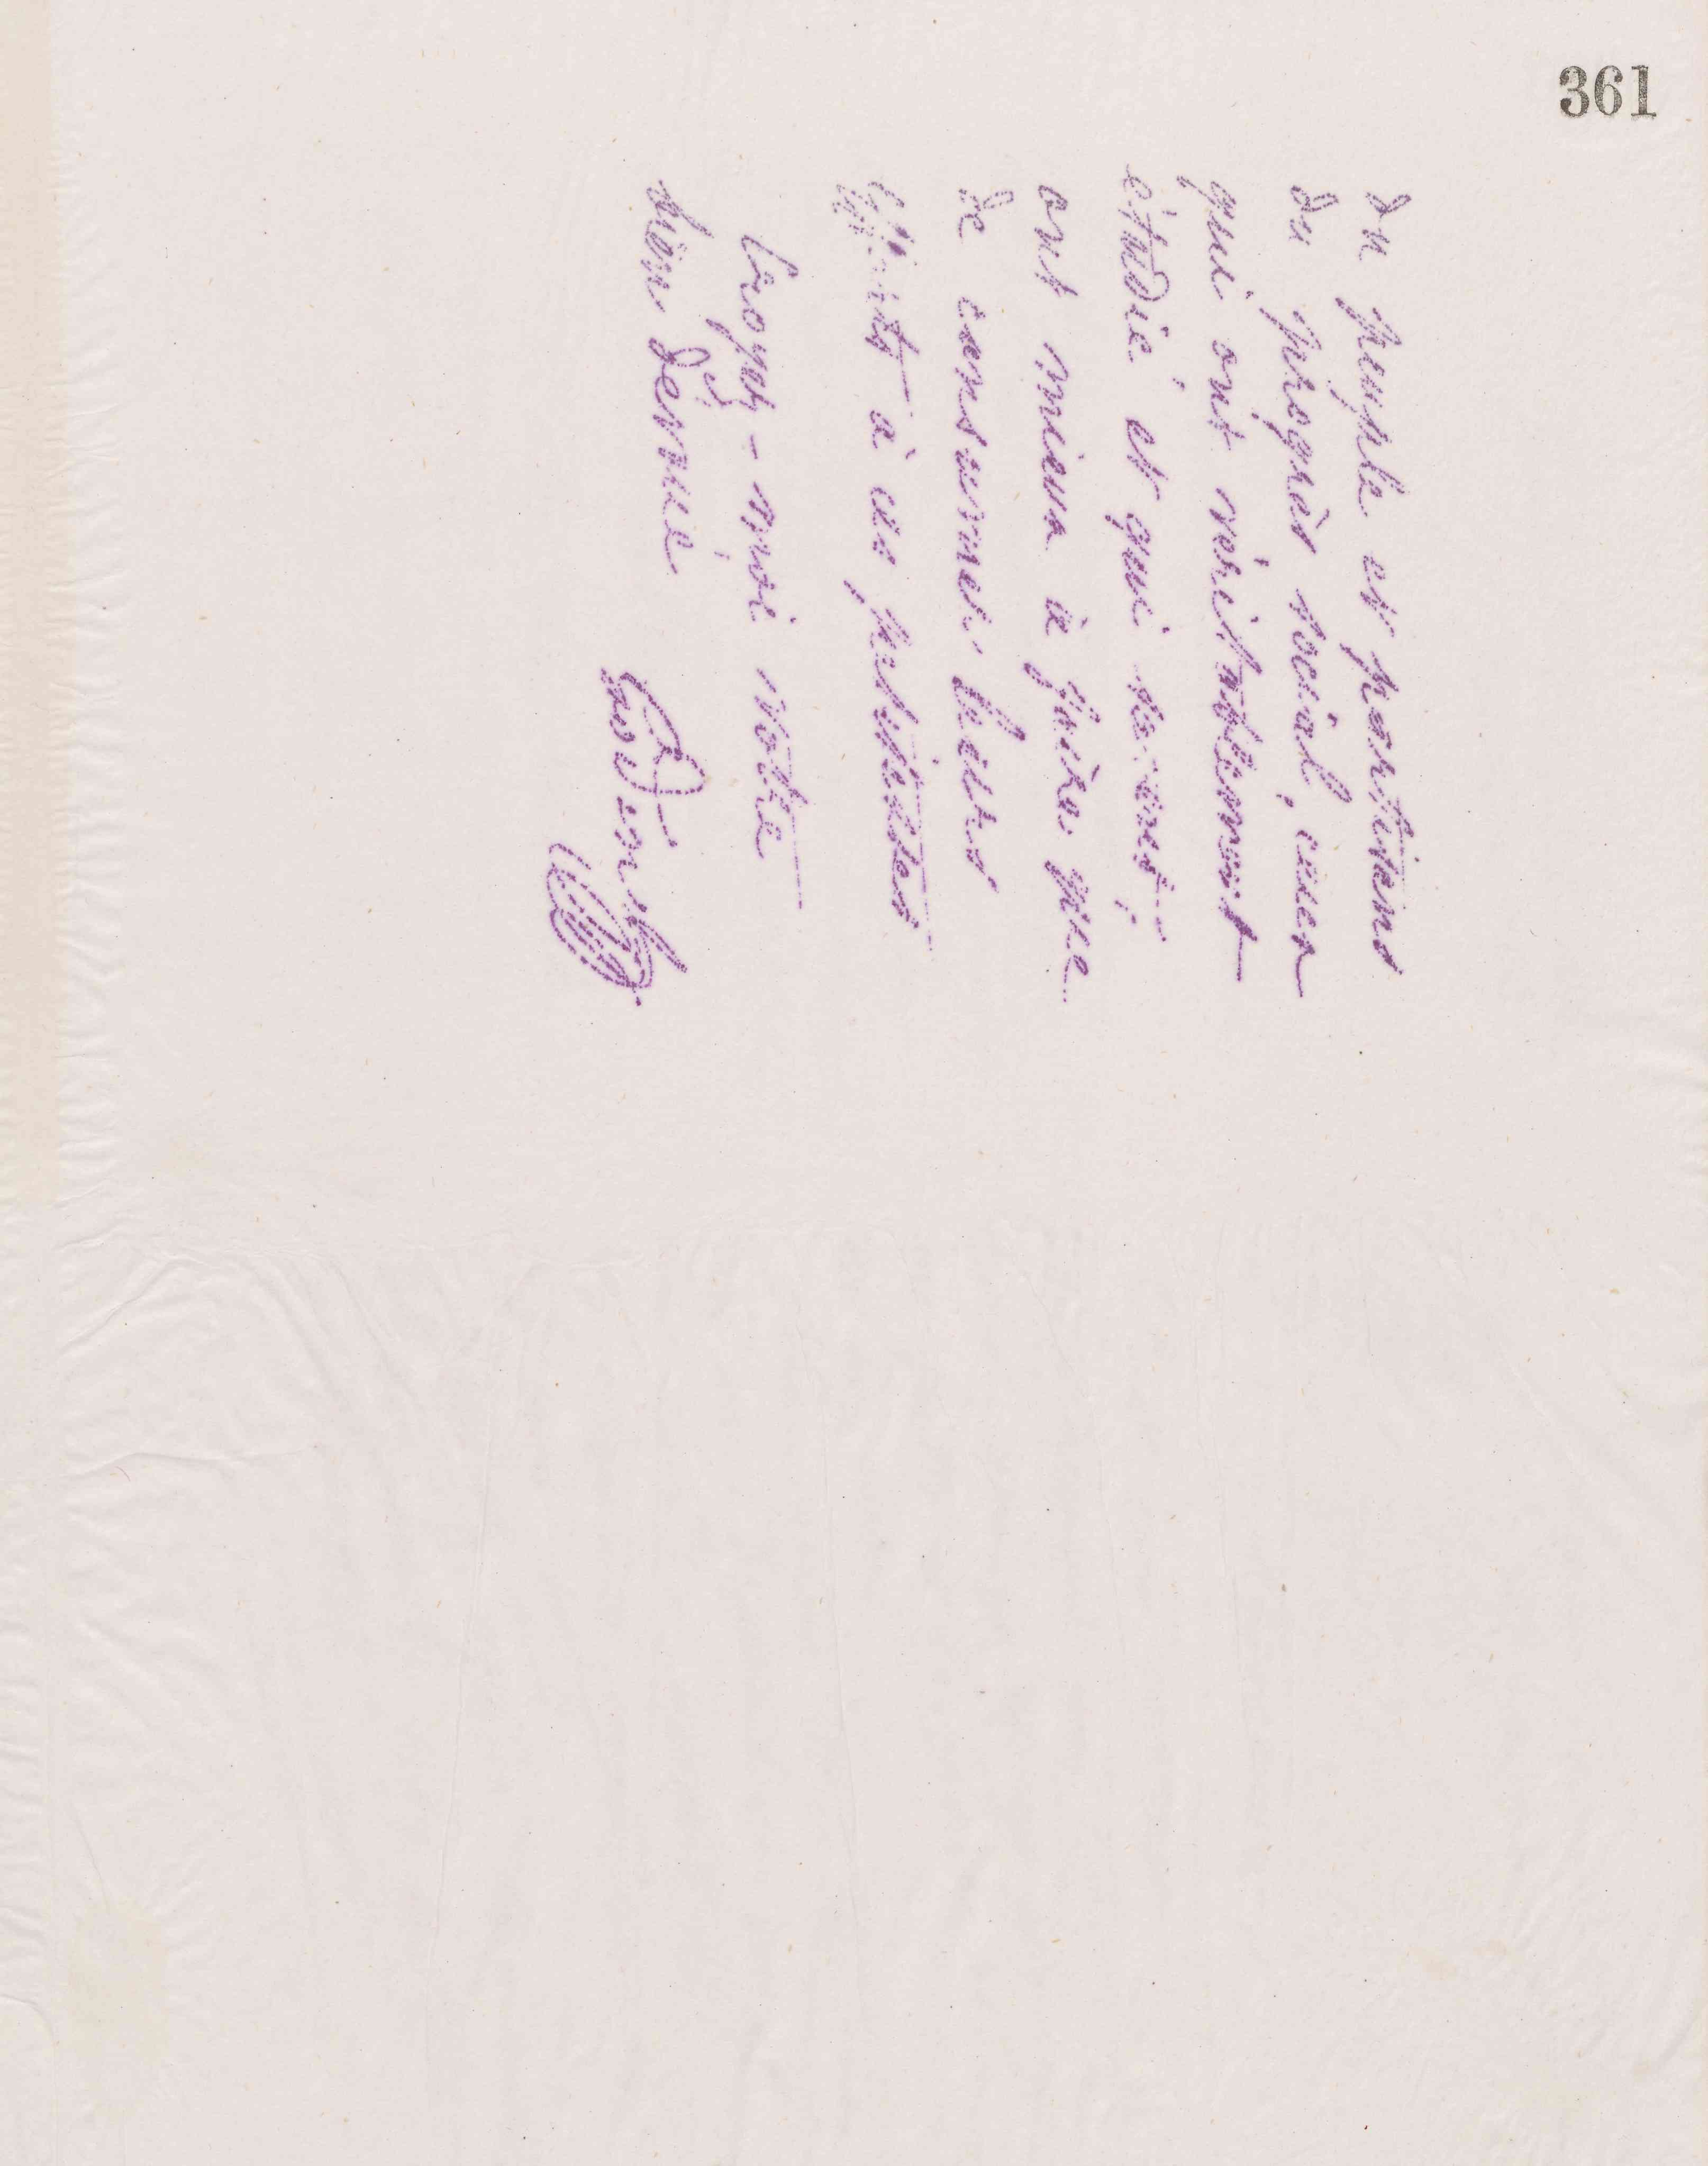 361
du peuple et partisans
du progrès social, ceux
qui ont véritablement
étudié et qui savent,
ont mieux à faire que
de consumer leurs
efforts à ces petitesses
Croyez-moi votre
bien dévoué
Godin